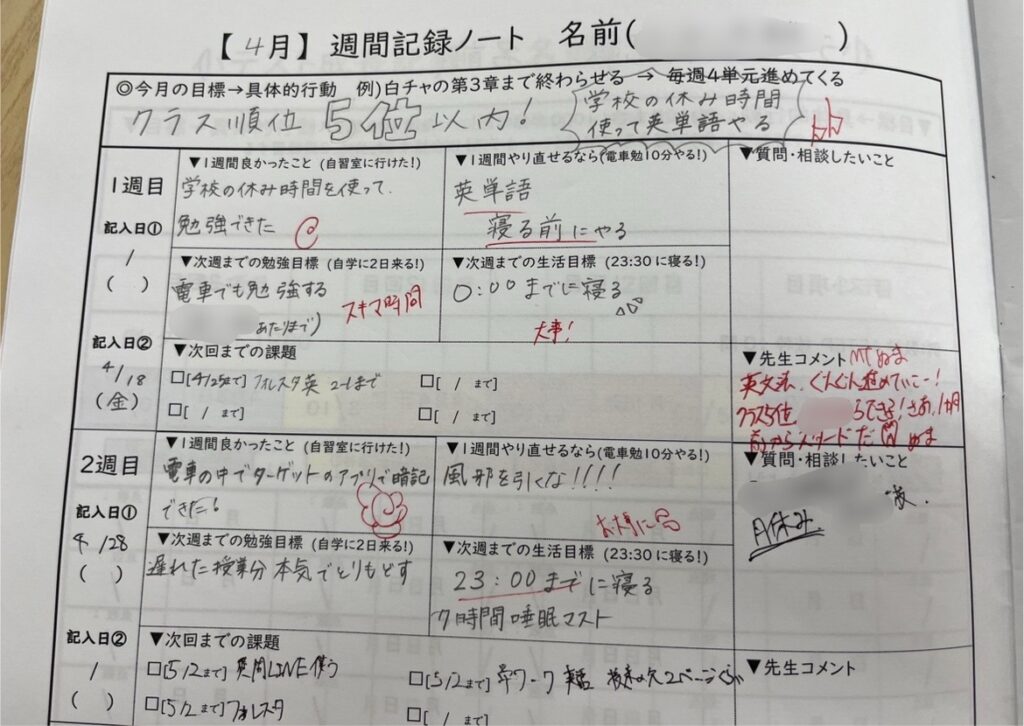 【4月】週間記録ノート 名前( )
◎今月の目標→具体的行動 例)白チャの第3章まで終わらせる → 毎週4単元進めてくる
クラス順位 5位以内!
学校の休み時間
使って英単語やる
1週目
▼1週間良かったこと (自習室に行けた!)
学校の休み時間を使って、
勉強できた
▼1週間やり直せるなら(電車勉10分やる!)
英単語
寝る前にやる
▼質問・相談したいこと
記入日①
/
( )
▼次週までの勉強目標 (自学に2日来る!)
電車でも勉強する
あたりまで)
スキマ時間
▼次週までの生活目標 (23:30に寝る!)
0:00までに寝る
大事!
記入日②
4/18
(金)
▼次回までの課題
□[4/25まで] フォレスタ英 2-1まで
□[ / まで]
□[ / まで]
□[ / まで]
▼先生コメント
ぐんぐん進めていこー!
クラス5位
2週目
▼1週間良かったこと (自習室に行けた!)
電車の中でターゲットのアプリで暗記
できた!
▼1週間やり直せるなら(電車勉10分やる!)
風邪を引くな!!!!
お大事に
▼質問・相談したいこと
月休み
記入日①
4/28
( )
▼次週までの勉強目標 (自学に2日来る!)
遅れた授業分本気でとりもどす
▼次週までの生活目標 (23:30に寝る!)
23:00までに寝る
7時間睡眠マスト
記入日②
/
( )
▼次回までの課題
□[5/2まで] 質問LINE使う
□[5/2まで] 学ワーク
□[5/2まで] フォレスタ
□[ / まで]
▼先生コメント